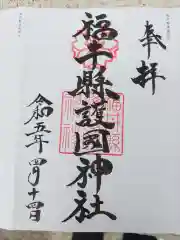 奉拝
福井縣護國神社
令和五年四月十四日